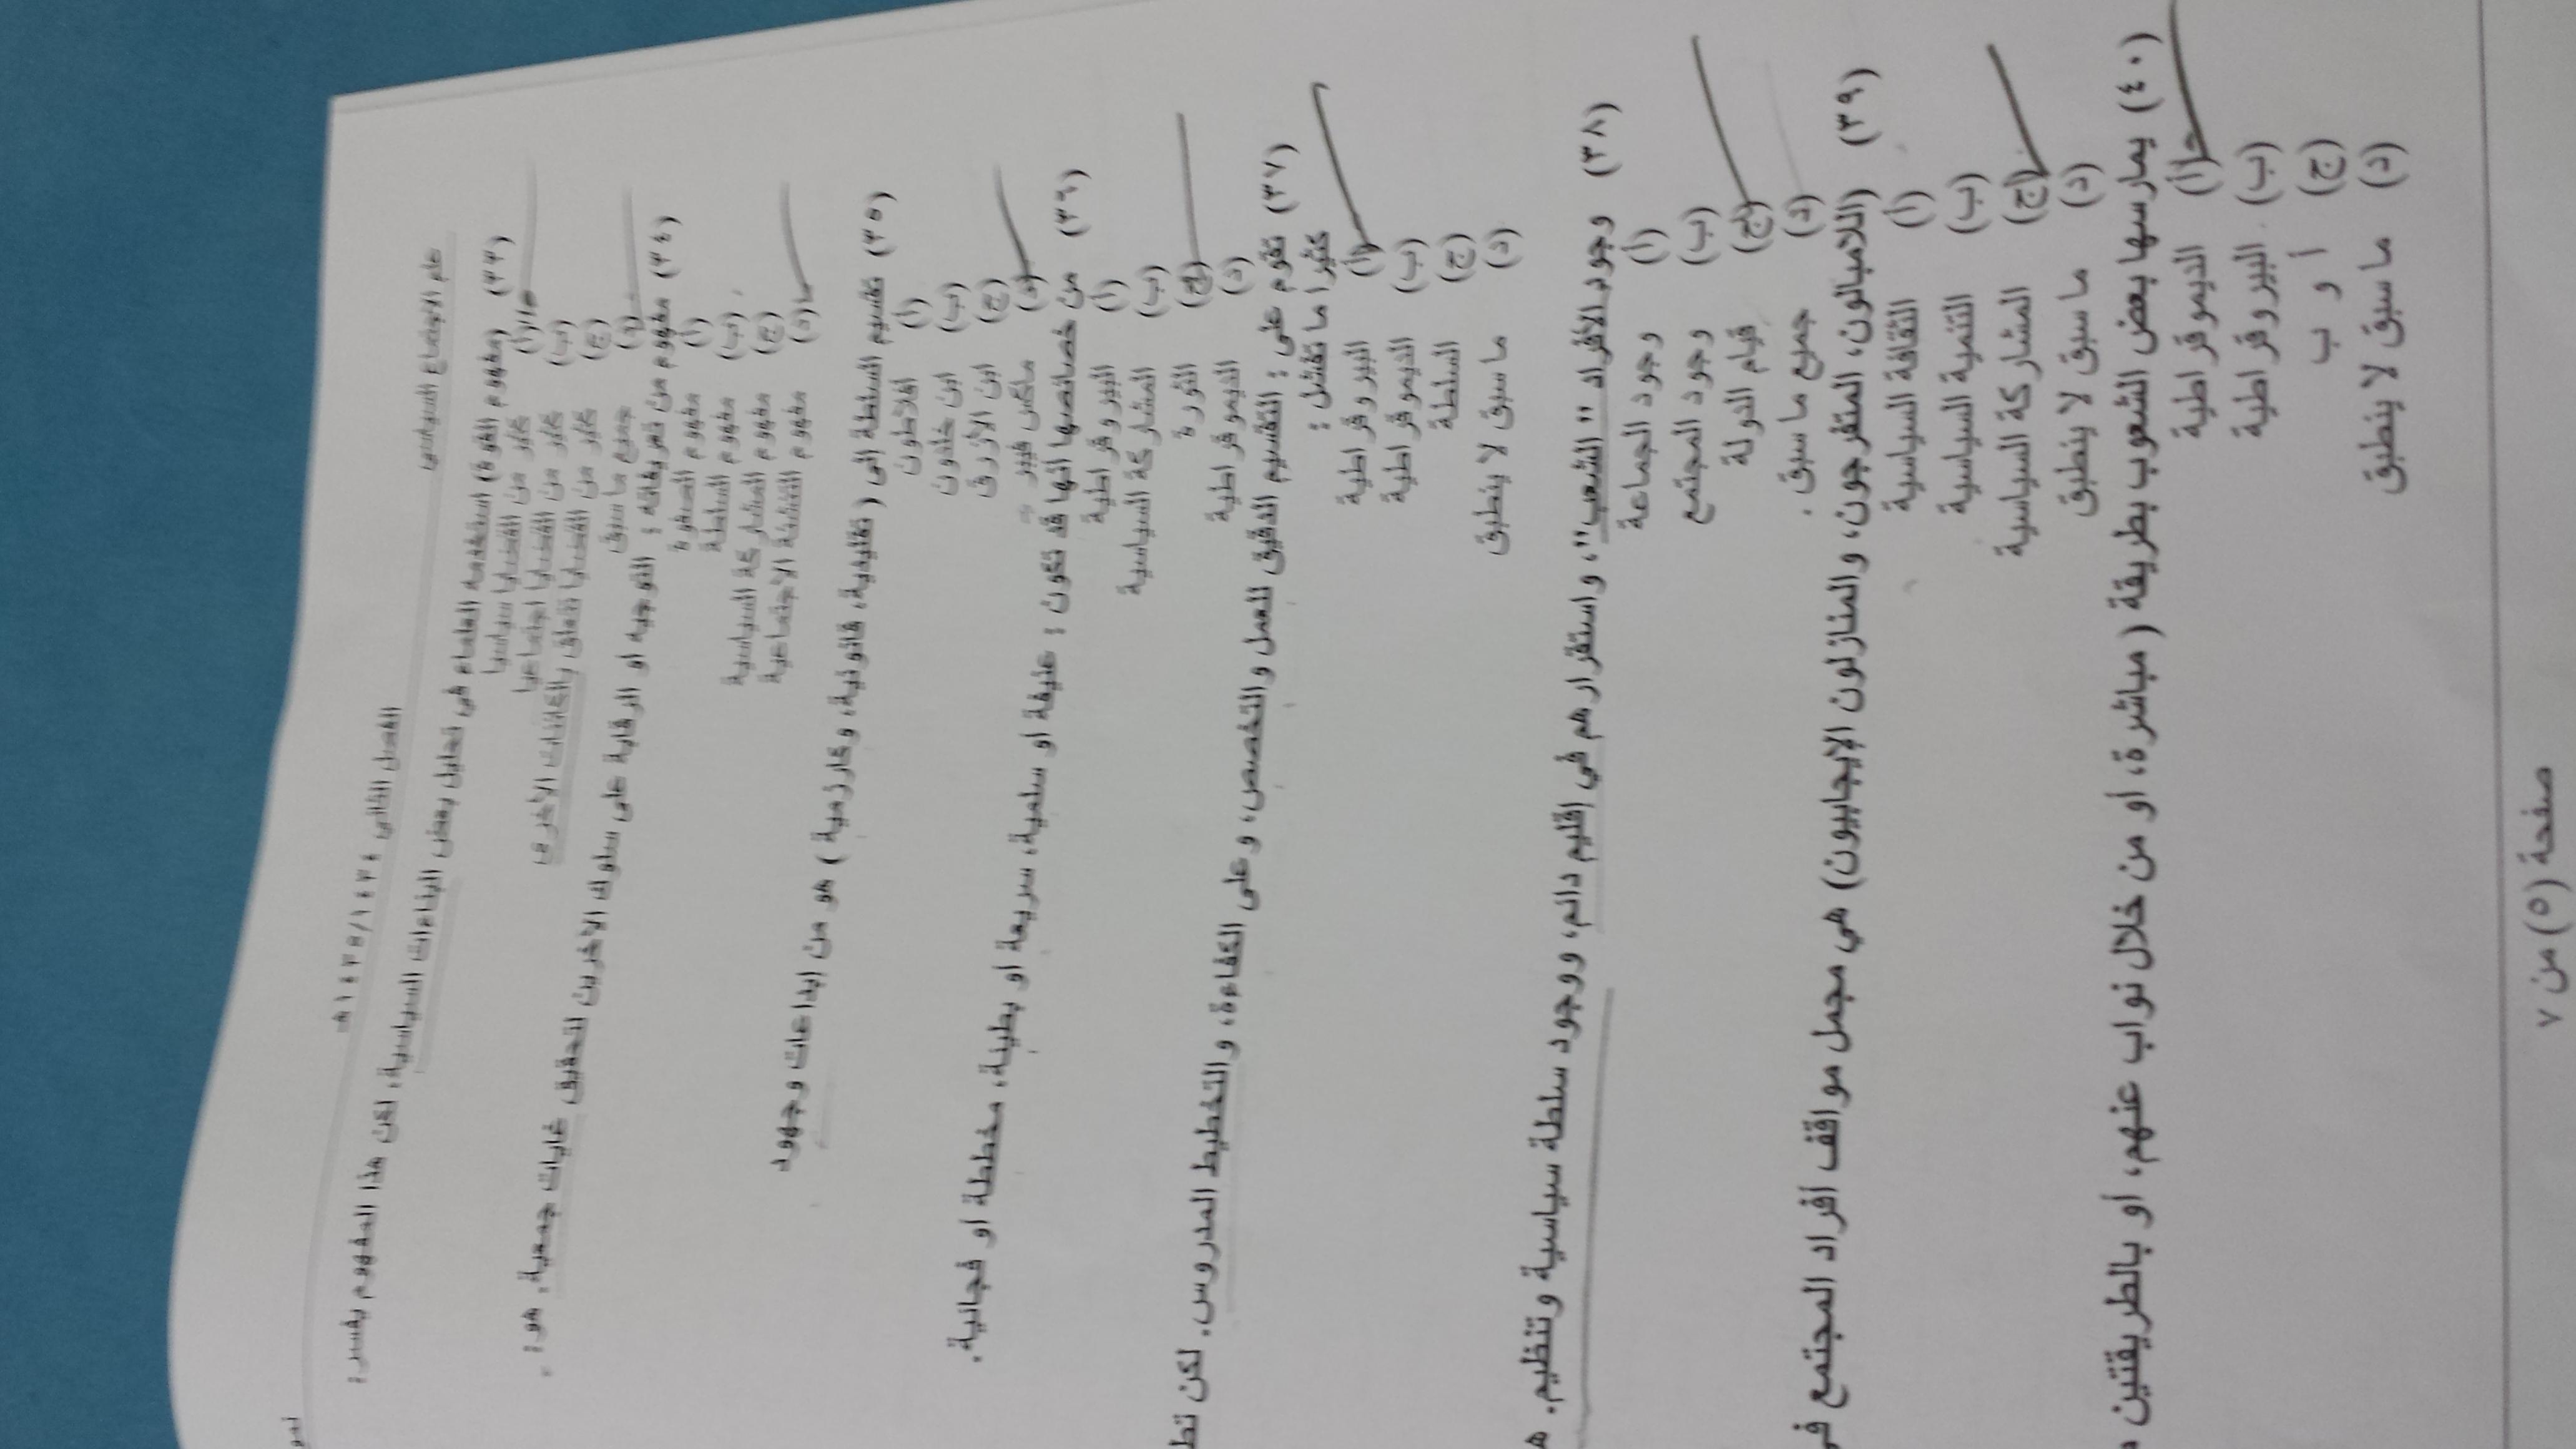 علم الاجتماع السياسي
الفصل الثاني ١٤٣٥/١٤٣٤هـ
نمو
(٣٣) (مفهوم القوة) استخدمه العلماء في تحليل بعض البناءات السياسية، لكن هذا المفهوم يفسر :
(أ) كثير من القضايا سياسيا
(ب) كثير من القضايا اجتماعيا
(ج) كثير من القضايا تتعلق بالكائنات الاخرى
(د) جميع ما سبق
(٣٤) مفهوم من تعريفاته : التوجيه او الرقابة على سلوك الاخرين لتحقيق غايات جمعية. هو :
(أ) مفهوم الصفوة
(ب) مفهوم السلطة
(ج) مفهوم المشاركة السياسية
(د) مفهوم التنشئة الاجتماعية
(٣٥) تقسيم السلطة إلى ( تقليدية، قانونية، وكارزمية ) هو من إبداعات وجهود
(أ) افلاطون
(ب) ابن خلدون
(ج) ابن الأزرق
(د) ماكس فيبر
(٣٦) من خصائصها انها قد تكون : عنيفة أو سلمية، سريعة أو بطيئة، مخططة أو فجائية.
(أ) البيروقراطية
(ب) المشاركة السياسية
(ج) الثورة
(د) الديموقراطية
(٣٧) تقوم على : التقسيم الدقيق للعمل والتخصص، وعلى الكفاءة، والتخطيط المدروس. لكن تط
كثيرا ما تفشل :
(أ) البيروقراطية
(ب) الديموقراطية
(ج) السلطة
(د) ما سبق لا ينطبق
(٣٨) وجود الأفراد " الشعب"، واستقرارهم في إقليم دائم، ووجود سلطة سياسية وتنظيم. ه
(أ) وجود الجماعة
(ب) وجود المجتمع
(ج) قيام الدولة
(د) جميع ما سبق .
(٣٩) (اللامبالون، المتفرجون، والمنازلون الإيجابيون) هي مجمل مواقف أفراد المجتمع في
(أ) الثقافة السياسية
(ب) التنمية السياسية
(ج) المشاركة السياسية
(د) ما سبق لا ينطبق
(٤٠) يمارسها بعض الشعوب بطريقة ( مباشرة، أو من خلال نواب عنهم، أو بالطريقتين م
(أ) الديموقراطية
(ب) البيروقراطية
(ج) أ و ب
(د) ما سبق لا ينطبق
صفحة (٥) من ٧